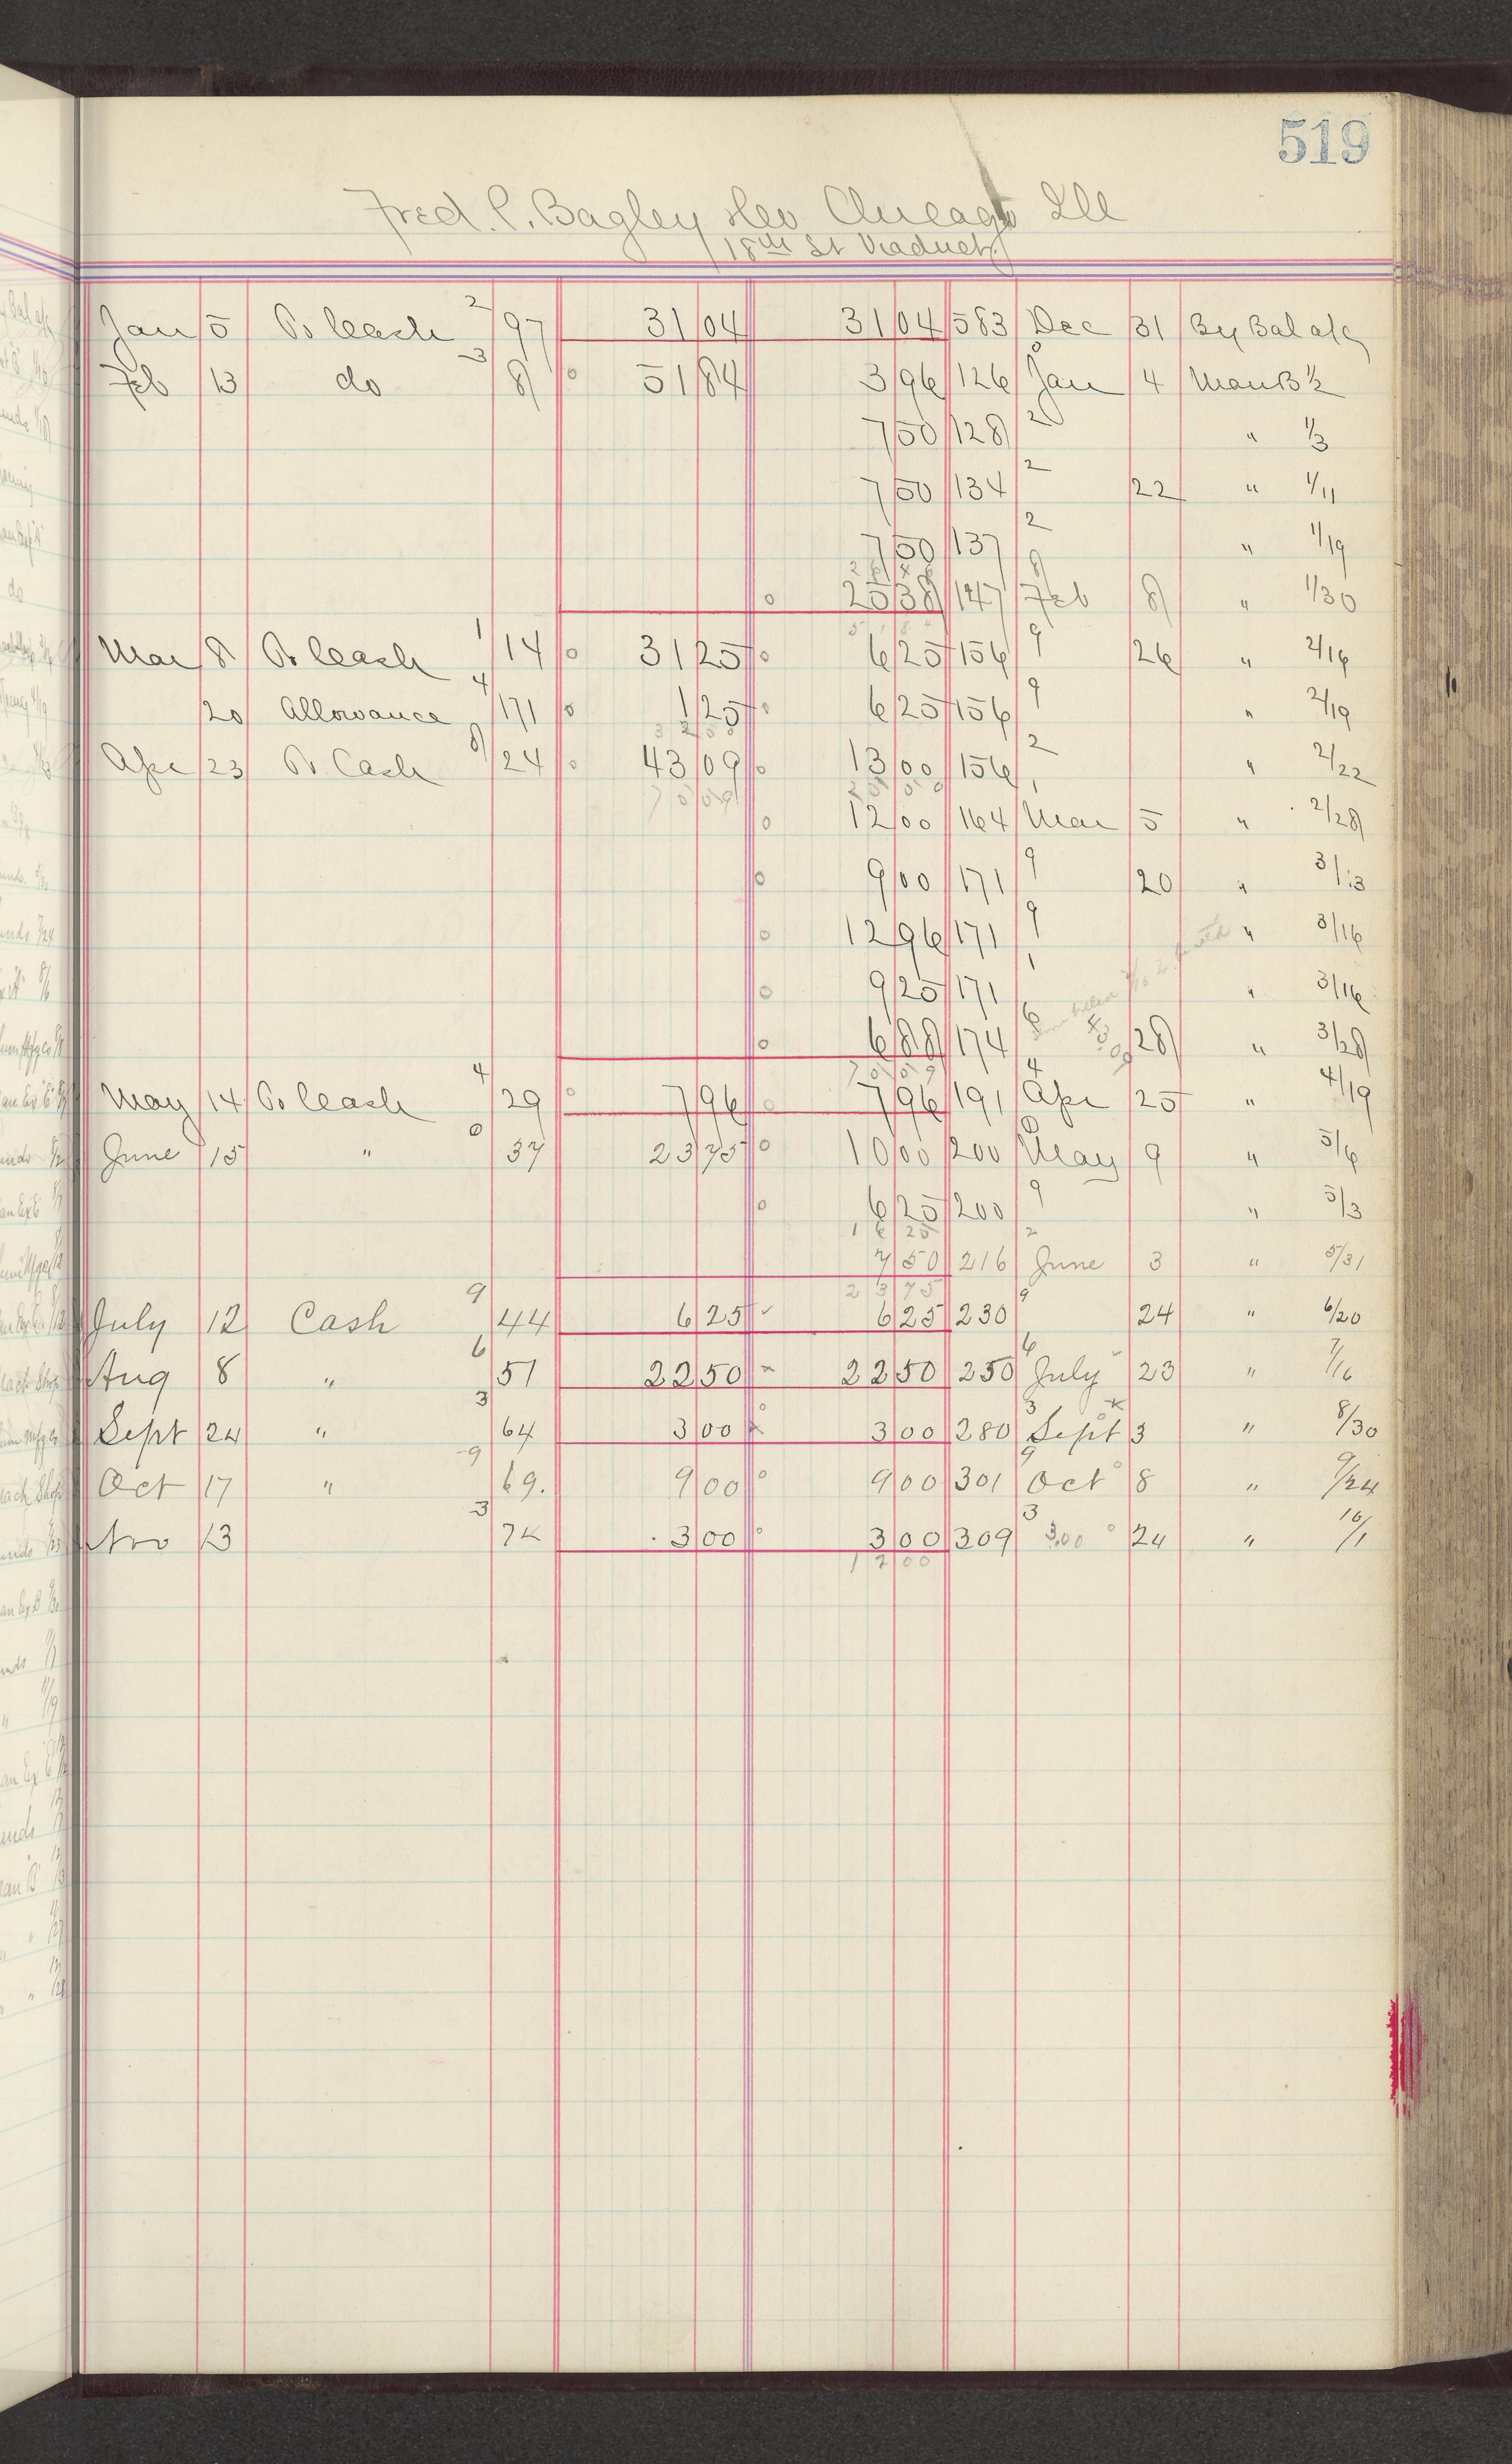 519
Fred. P. Bagley & Co Chicago Ill
18th St Viaduct.
Jan 5 To Cash 2 97 31 04 31 04 583 Dec 31 By Bal a/c
Feb 13 do 3 8 51 84 3 96 126 0 Jan 4 Man B 1/2
7 50 128 2 " 1/3
7 50 134 2 22 " 1/11
7 50 137 2 " 1/19
26 46
25 38 147 8 Feb 8 " 1/30
51 84
Mar 8 To Cash 1 14 31 25 6 25 156 9 26 " 2/16
20 Allowance 4 171 1 25 6 25 156 9 " 2/19
32 50
Apr 23 To Cash 8 24 43 09 13 00 156 2 " 2/22
75 59 25 50
12 00 164 1 Mar 5 " 2/28
9 00 171 9 20 " 3/13
12 96 171 9 " 3/16
9 25 171 1 " 3/16
6 88 174 6 43 09 28 " 3/28
May 14 To Cash 4 29 7 96 7 96 191 4 Apr 25 " 4/19
June 15 " 0 37 23 75 10 00 200 0 May 9 " 5/6
6 25 200 9 " 5/3
16 25
7 50 216 2 June 3 " 5/31
23 75
July 12 Cash 9 44 6 25 6 25 230 9 24 " 6/20
Aug 8 " 6 51 22 50 22 50 250 6 July 23 " 7/16
Sept 24 " 3 64 3 00 3 00 280 3 Sept 3 " 8/30
Oct 17 " 9 69. 9 00 9 00 301 9 Oct 8 " 9/24
Nov 13 3 74 3 00 3 00 309 3 3.00 24 " 10/1
12 00